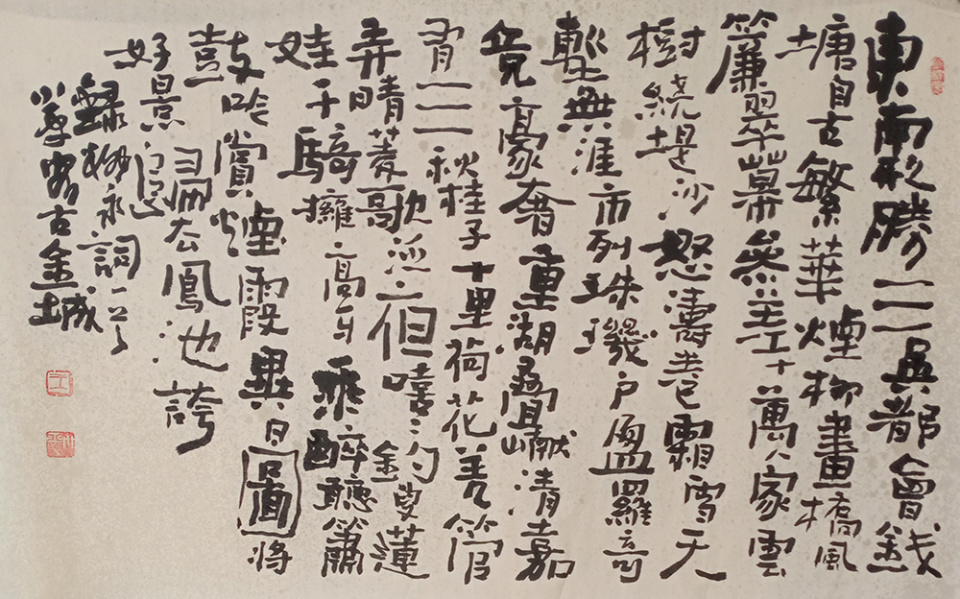 東南形勝三吳都會錢
塘自古繁華煙柳畫橋風
簾翠幕參差十萬人家雲
樹繞堤沙怒濤卷霜雪天
塹無涯市列珠璣戶盈羅
竞豪奢重湖疊巘清嘉
有三秋桂子十里荷花羌管
弄晴菱歌泛亱嘻々釣叟蓮
娃千騎擁高牙乘醉聽簫
鼓吟賞煙霞異日圖將
好景歸去鳳池誇
錄柳永詞一
古金城